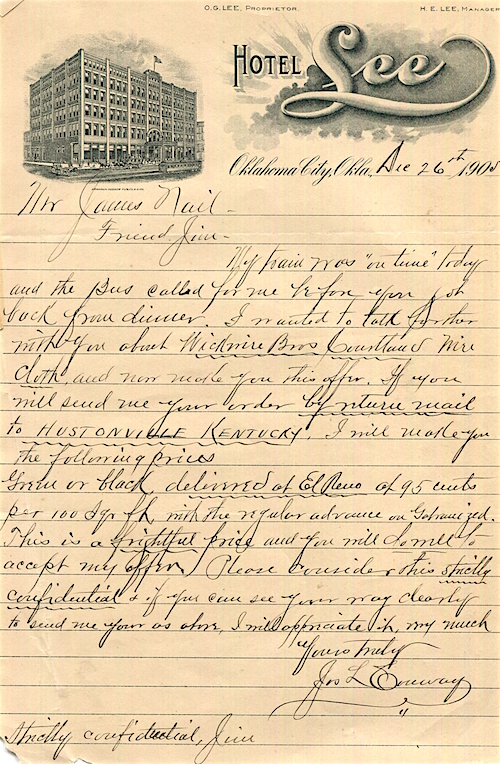 O.G. LEE, PROPRIETOR. H. E. LEE, MANAGER
HOTEL Lee
Oklahoma City, Okla., Dec 26th 1905
Mr James Nail -
Friend Jim -
My train was "on time" today
and the Bus called for me before you got
back from dinner. I wanted to talk further
with you about Wickwire Bros Courtland Wire
Cloth, and now make you this offer. If you
will send me your order by return mail
to HUSTONVILLE KENTUCKY. I will make you
the following prices
Green or black delivered at El Reno at 95 cents
per 100 sqr ft, with the regular advance on Galvanized.
This is a frightful price and you will do well to
accept my offer. Please consider this strictly
confidential & if you can see your way clearly
to send me your as above, I will appreciate it very much
Yours truly
Jos L Conway
Strictly confidential, Jim